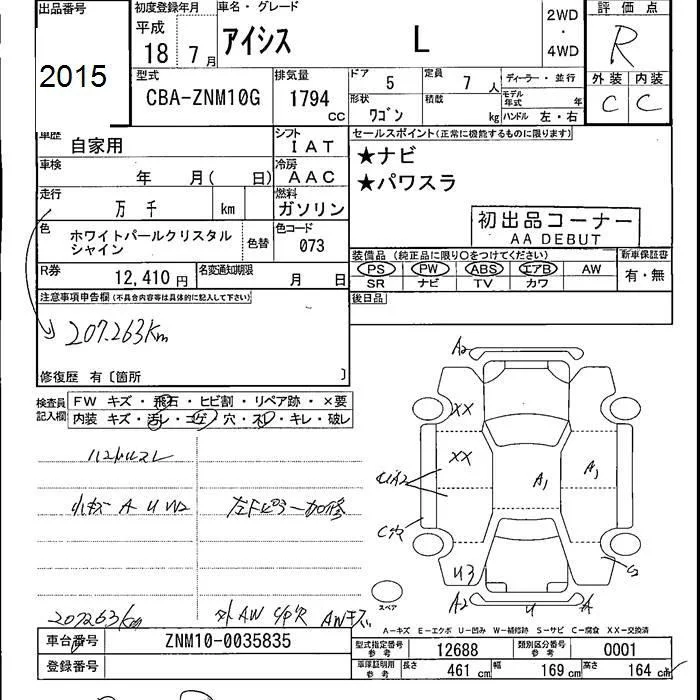 出品番号
2015
初度登録年月
平成
18 7 月
車名・グレード
アイシス L
2WD
・
4WD
評価点
R
外装 内装
C C
型式
CBA-ZNM10G
排気量
1794 cc
ドア 5
定員 7 人
形状 ワゴン
積載 kg
ディーラー・並行
モデル年式 年
ハンドル 左・右
車歴
自家用
シフト
IAT
車検
年 月( 日)
冷房
AAC
走行
万 千 km
燃料
ガソリン
色
ホワイトパールクリスタル
シャイン
色替
色コード
073
R券
12,410 円
名変通知期限
月 日
セールスポイント(正常に機能するものに限ります)
★ナビ
★パワスラ
初出品コーナー
AA DEBUT
装備品 (純正品に限り○をつけてください)
PS PW ABS エアB AW
SR ナビ TV カワ
新車保証書
有・無
注意事項申告欄(不具合内容等は具体的に記入して下さい)
207.263Km
修復歴 有〔箇所 〕
後日品
検査員
記入欄
FW キズ・飛石・ヒビ割・リペア跡・×要
内装 キズ・汚レ・コゲ・穴・スレ・キレ・破レ
ハンドルスレ
小キズ A U W2
207263Km
外AW
AWキズ
A2
XX
XX
A1
A1
UA2
C穴
U3
S2
A2
U
A
スペア
A-キズ E-エクボ U-凹み W-補修跡 S-サビ C-腐食 XX-交換済
車台番号
ZNM10-0035835
登録番号
型式指定番号
参考
12688
類別区分番号
参考
0001
車庫証明用
参考
長さ 461 cm
幅 169 cm
高さ 164 cm